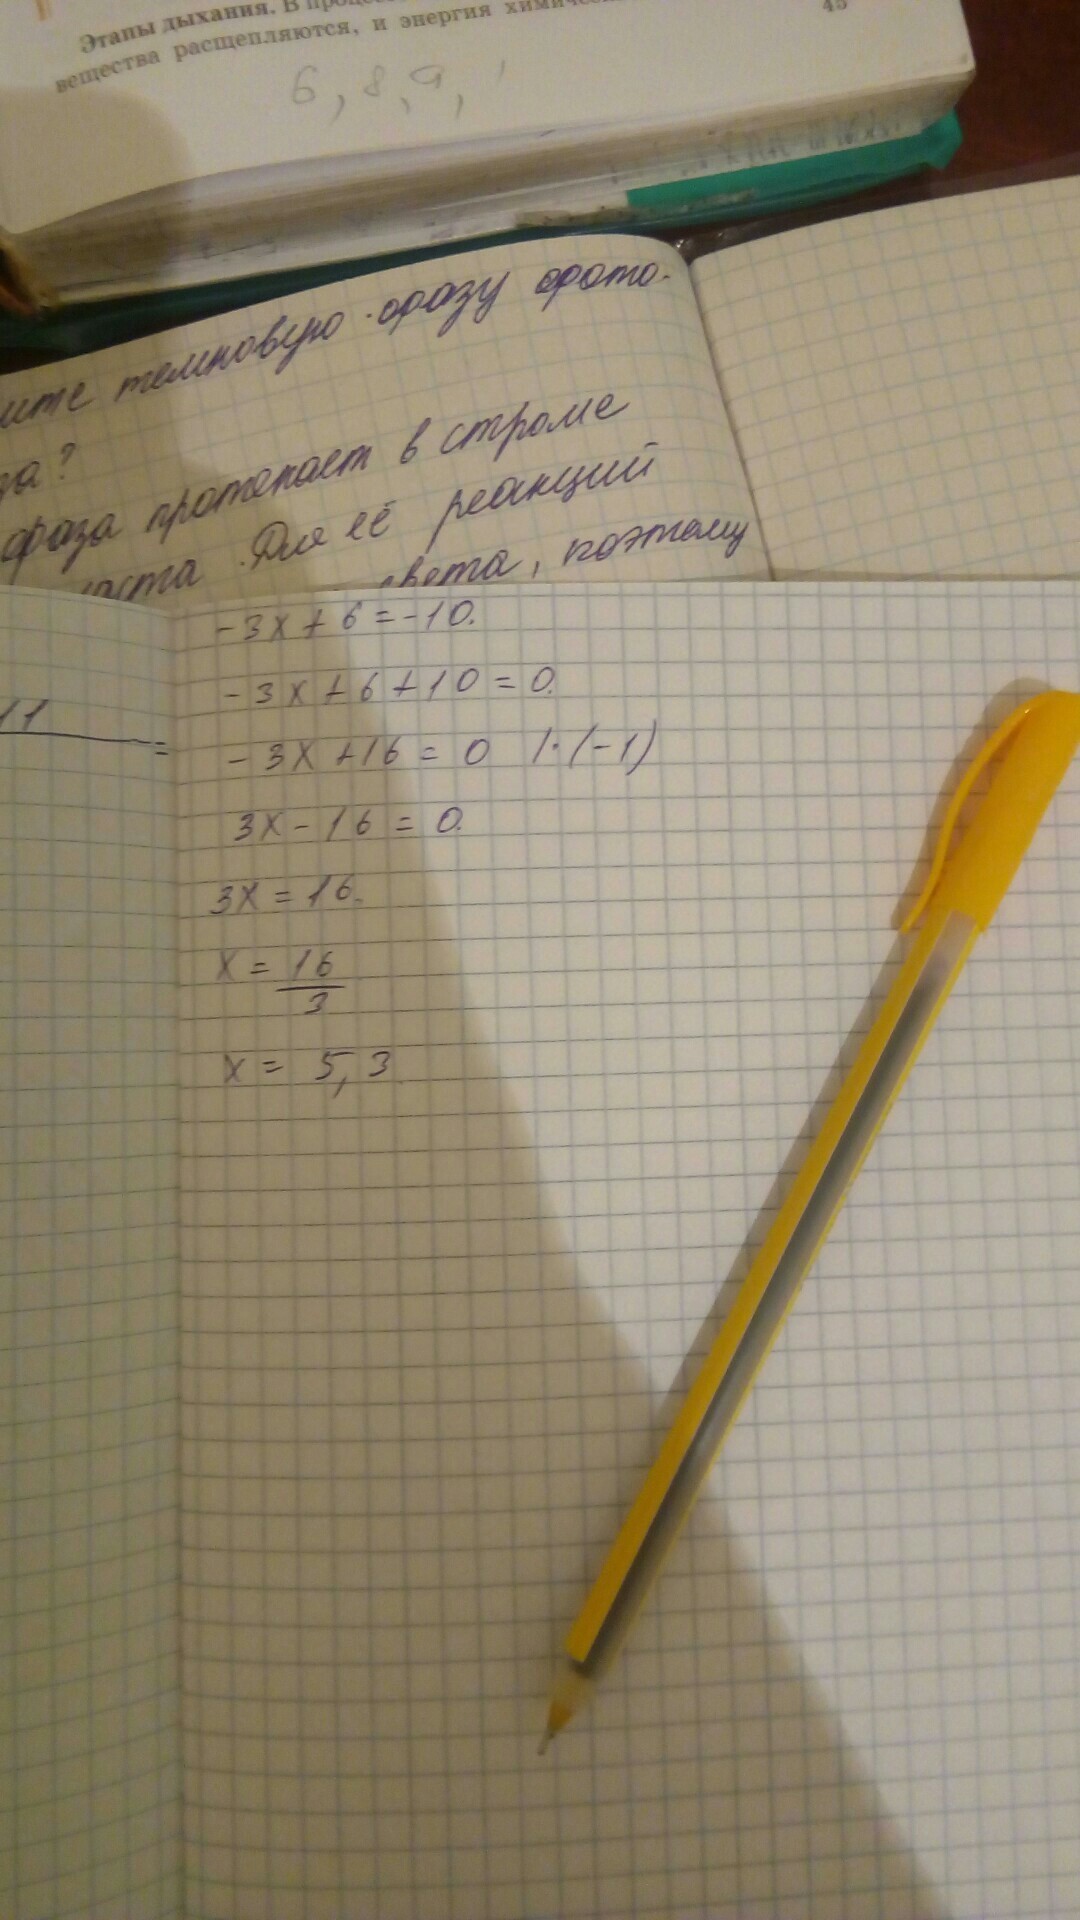 45
Этапы дыхания. В
вещества расщепляются, и энергия
6, 8, 9,
темновую фазу фото-
?
фаза протекает в строме
Для её реакций
света, поэтому
-3x+6=-10.
-3x+6+10=0.
11
=
-3x+16=0 |·(-1)
3x-16=0.
3x=16.
x=16/3
x= 5,3